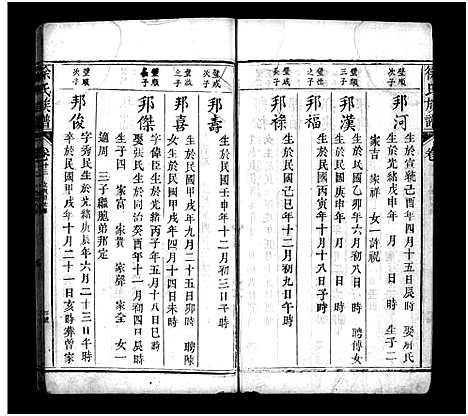 徐氏族譜
璧順次子
邦河
生於宣統己酉年四月十五日辰時 娶 氏
生於光緒戊申年 月 日 時 生子二
家吉 家祥 女一許祝
璧順三子
邦漢
生於民國乙卯年六月初八辰時 聘傅女
生於民國庚申年 月 日 時
邦福
生於民國 年十月十八日子時
邦祿
生於民國己巳年十二月初九日午時
璧成次子
邦壽
生於民國壬申年十二月初三日子時
璧 之子
邦喜
生於民國甲戌年九月二十日時 聘陳
女生於民國甲戌年四月十四日未時
璧順長子
邦傑
字偉臣生於光緒丙子年五月十八日巳時
娶張氏生於同治癸酉年十一月初四日時
生子四 家富 家貴 家馨 家全 女一
適周 三子繼胞弟邦定
璧順次子
邦俊
字秀民生於光緒庚辰年六月二十三日午時
卒於民國甲戌年十月二十一日亥時葬曾家
徐氏族譜
卷